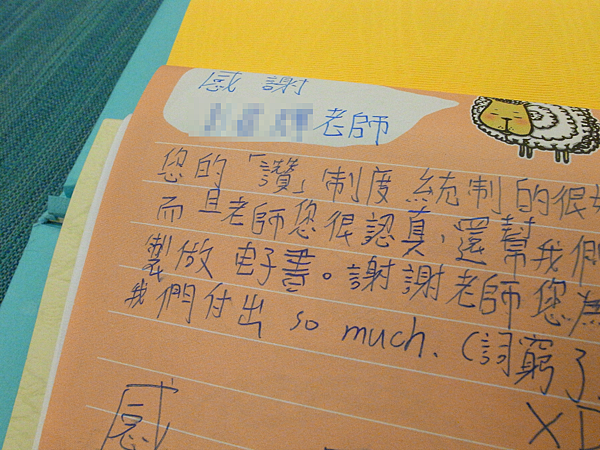 感謝
老師
您的「讚」制度 統制的很
而且老師您很認真，還幫我們
製做 电子書。謝謝老師您為
我們付出 so much. (詞窮了
XD
感